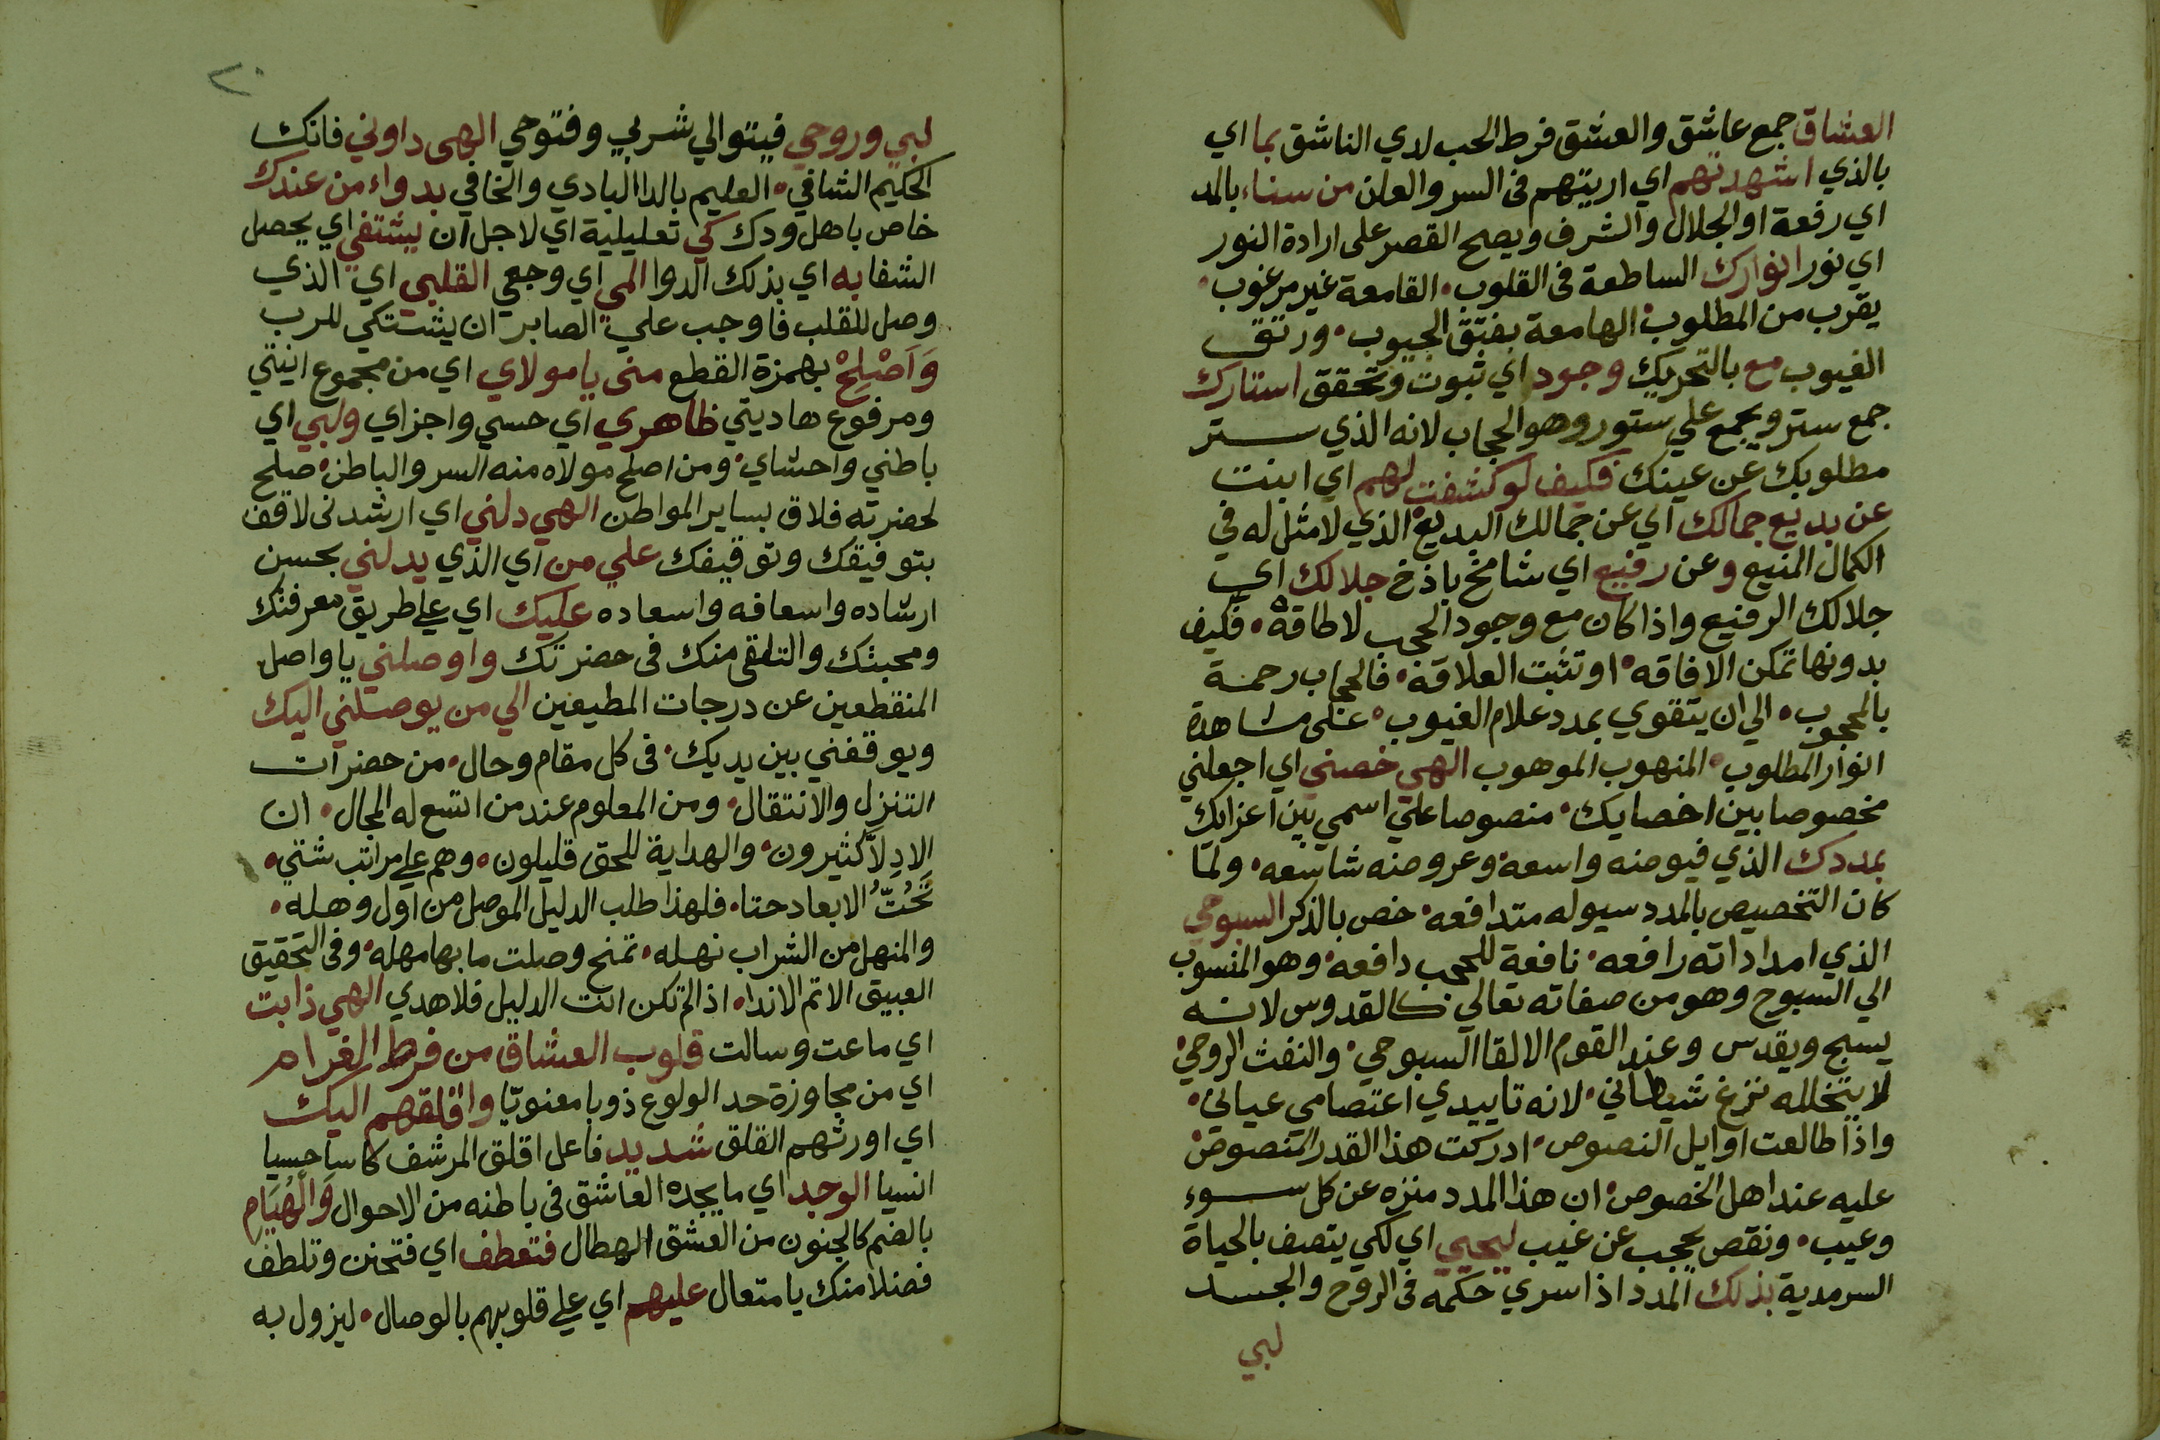 العشاق جمع عاشق والعشق فرط الحب لدي الناشق بما اي
بالذي اشهدتهم اي اريتهم فى السر والعلن من سناء بالمد
اي رفعة او الجلال والشرف ويصح القصر على ارادة النور
اي نور انوارك الساطعة فى القلوب القامعة غير مرغوب
يقرب من المطلوب الهامعة بفتق الجيوب ورتق
الغيوب مع بالتحريك وجود اي ثبوت وتحقق استارك
جمع ستر ويجمع علي ستور وهو الحجاب لانه الذي ستر
مطلوبك عن عينك فكيف لو كشفت لهم اي ابنت
عن بديع جمالك اي عن جمالك البديع الذي لا مثل له في
الكمال المنيع وعن رفيع اي شامخ باذخ جلالك اي
جلالك الرفيع واذا كان مع وجود الحجب لا طاقة فكيف
بدونها تمكن الافاقه او تثبت العلاقة فالحجاب رحمة
بالمحجوب الي ان يتقوي بمدد علام الغيوب على مشاهدة
انوار المطلوب المنهوب الموهوب الهي خصني اي اجعلني
مخصوصا بين اخصايك منصوصا علي اسمي بين اعزايك
بمددك الذي فيوضه واسعة وعروضه شاسعه ولما
كان التخصيص بالمدد سيوله متدافعه خص بالذكر السبوحي
الذي امداداته رافعه نافعة للحجب دافعه وهو المنسوب
الي السبوح وهو من صفاته تعالي كالقدوس لانه
يسبح ويقدس وعند القوم الالقا السبوحي والنفث الروحي
لا يتخلله نزغ شيطاني لانه تاييدي اعتصامي عياني
واذا طالعت اوايل النصوص ادركت هذا القدر المنصوص
عليه عند اهل الخصوص ان هذا المدد منزه عن كل سوء
وعيب ونقص يحجب عن غيب ليحيي اي لكي يتصف بالحياة
السرمدية بذلك المدد اذا سري حكمه فى الروح والجسد
لبي
٢٠
لبي وروحي فيتوالي شربي وفتوحي الهى داوني فانك
الحكيم الشافي العليم بالدا البادي والخافي بدواء من عندك
خاص باهل ودك كي تعليلية اي لاجل ان يشتفي اي يحصل
الشفا به اي بذلك الدوا المي اي وجعي القلبي اي الذي
وصل للقلب فاوجب علي الصابر ان يشتكي للرب
وَاَصْلِحْ بهمزة القطع منى يا مولاي اي من مجموع انيتي
ومرفوع هاديتي ظاهري اي حسي واجزاي ولبي اي
باطني واحشاي ومن اصلح مولاه منه السر والباطن صلح
لحضرته فلاق بساير المواطن الهي دلني اي ارشدنى لاقف
بتوفيقك وتوقيفك علي من اي الذي يدلني بحسن
ارشاده واسعافه واسعاده عليك اي علي طريق معرفتك
ومحبتك والتلقى منك فى حضرتك واوصلني يا واصل
المنقطعين عن درجات المطيعين الي من يوصلني اليك
ويوقفني بين يديك فى كل مقام وحال من حضرات
التنزل والانتقال ومن المعلوم عند من اتسع له المجال ان
الادلاّ كثيرون والهداية للحق قليلون وهم علي مراتب شتي
تَحُتُّ الابعاد حتا فلهذا طلب الدليل الموصل من اول وهله
والمنهل من الشراب نهله تمنح وصلت ما بها مهله وفى التحقيق
العبيق الاتم الاندا اذا لم تكن انت الدليل فلا هدي الهي ذابت
اي ماعت وسالت قلوب العشاق من فرط الغرام
اي من مجاوزة حد الولوع ذوبا معنويّا واقلقهم اليك
اي اورثهم القلق شديد فاعل اقلق المرشف كاسا حسيا
انسيا الوجد اي ما يجده العاشق فى باطنه من الاحوال وَالْهُيَام
بالضم كالجنون من العشق الهطال فتعطف اي فتحنن وتلطف
فضلا منك يا متعال عليهم اي علي قلوبهم بالوصال ليزول به